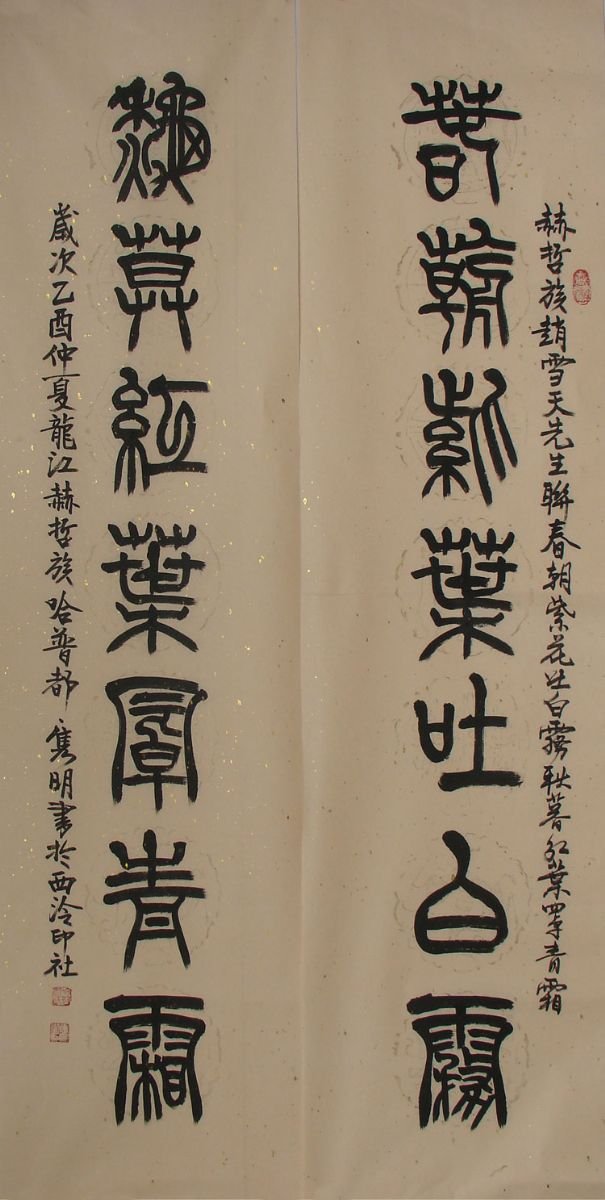 赫哲族趙雪天先生聯春朝紫花吐白霧秋暮紅葉罩青霜
春朝紫葉吐白霧
龝莫紅葉罩青霜
歲次乙酉仲夏龍江赫哲族哈普都雋明書於西泠印社